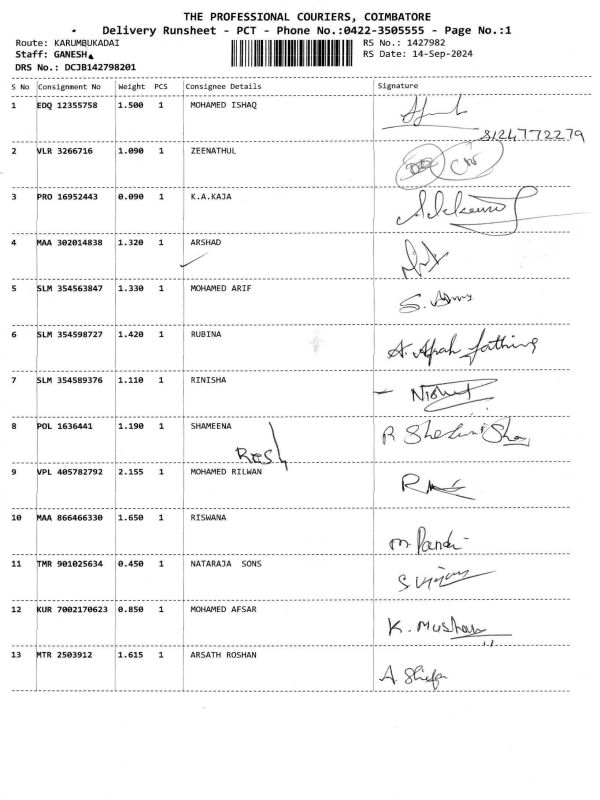 THE PROFESSIONAL COURIERS, COIMBATORE
Delivery Runsheet - PCT - Phone No.:0422-3505555 - Page No.:1
Route: KARUMBUKADAI RS No.: 1427982
Staff: GANESH RS Date: 14-Sep-2024
DRS No.: DCJB142798201
S No Consignment No Weight PCS Consignee Details Signature
1 EDQ 12355758 1.500 1 MOHAMED ISHAQ
8124772279
2 VLR 3266716 1.090 1 ZEENATHUL
3 PRO 16952443 0.090 1 K.A.KAJA
4 MAA 302014838 1.320 1 ARSHAD
5 SLM 354563847 1.330 1 MOHAMED ARIF
6 SLM 354598727 1.420 1 RUBINA
7 SLM 354589376 1.110 1 RINISHA
8 POL 1636441 1.190 1 SHAMEENA
9 VPL 405782792 2.155 1 MOHAMED RILWAN
10 MAA 866466330 1.650 1 RISWANA
11 TMR 901025634 0.450 1 NATARAJA SONS
12 KUR 7002170623 0.850 1 MOHAMED AFSAR
13 MTR 2503912 1.615 1 ARSATH ROSHAN